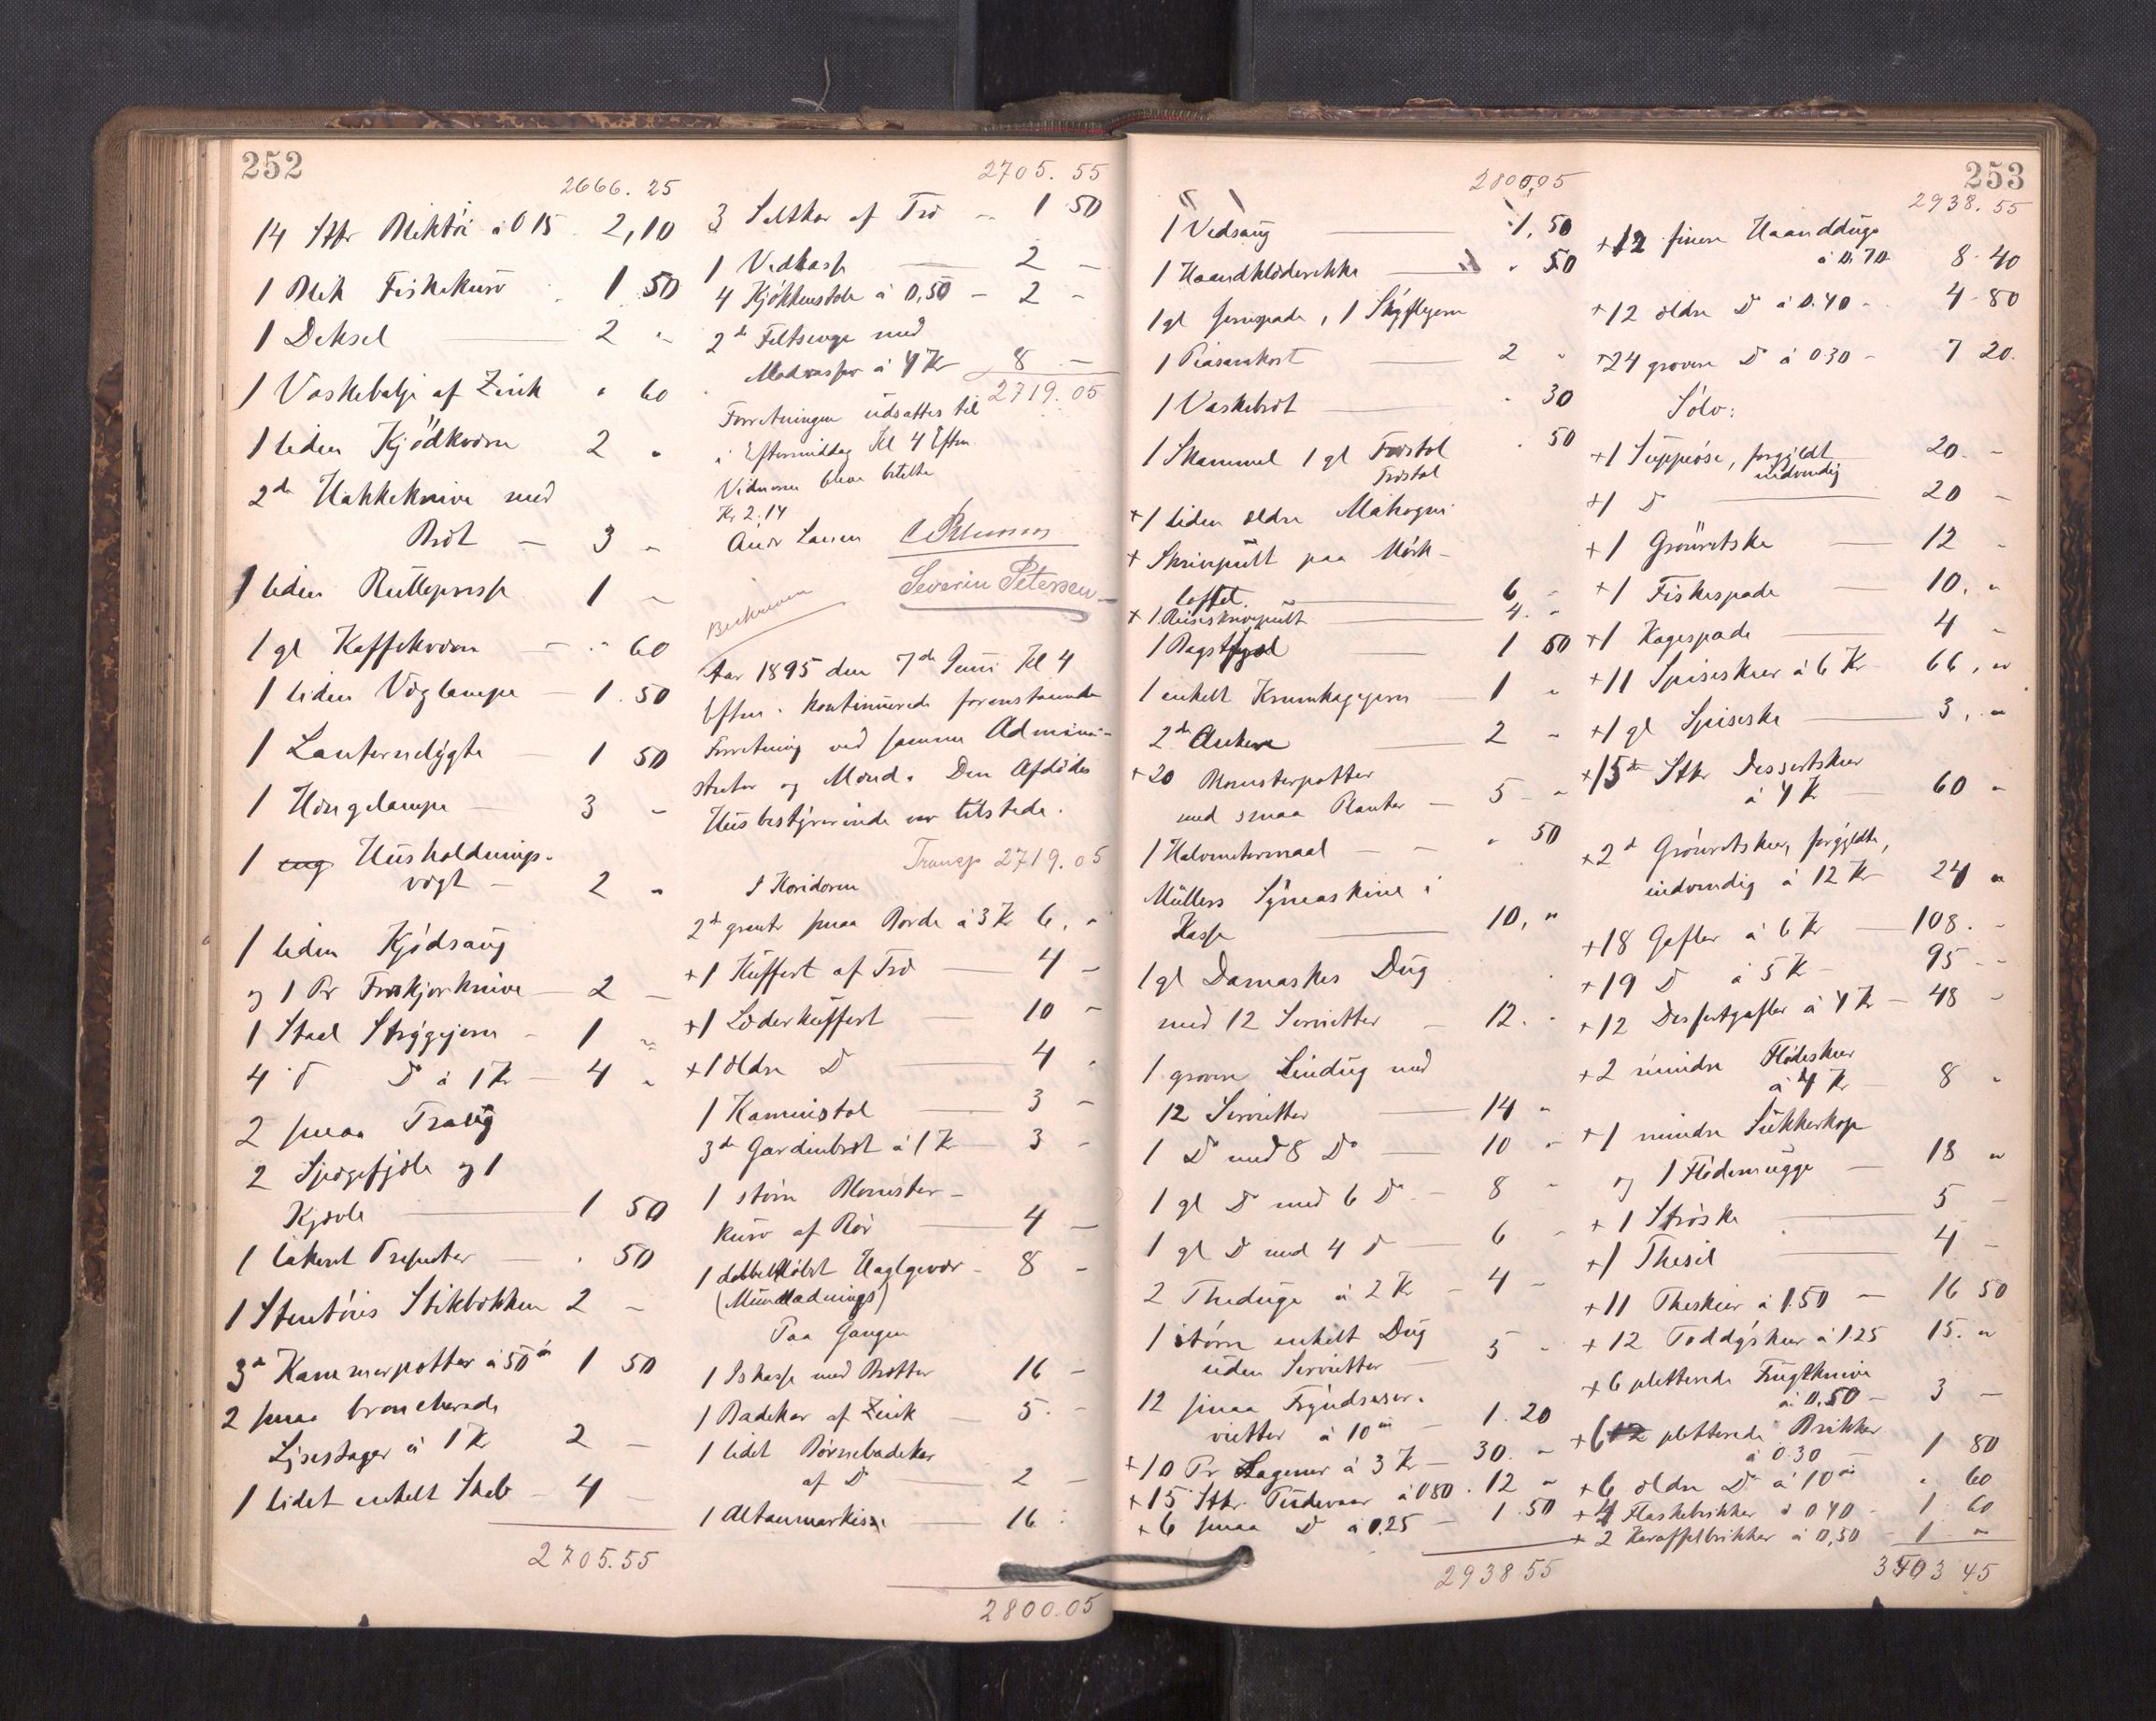 252
2666. 25
14 Stkr Bliktöi á 0 15 2,10
1 Blik Fiskekurv 1 50
1 Deksel 2 "
1 Vaskebalje af Zink " 60
1 liden Kjödkværn 2 "
2de Hakkeknive med
Bræt — 3 "
1 liden Rullepresse 1 "
1 gl Kaffekværn — " 60
1 liden Væglampe — 1. 50
1 Lanternelygte — 1 50
1 Hængelampe — 3 "
1 Husholdnings-
vægt — 2 "
1 liden Kjödsaug
og 1 Pr Forskjærknive — 2 —
1 Staal Strygejern — 1 "
4 D D á 1 Kr — 4 "
2 smaa Traug
2 Spegefjæle og 1
Kjævle — 1 50
1 lakeret Præsenter — . 50
1 Stentöis Stikbækken 2 —
3de Kammerpotter á 50 ø 1 50
2 smaa broncherede
Lysestager á 1 Kr 2 —
1 lidet enkelt Skab — 4 —
2705.55
2705. 55
3 Saltkar af Træ — 1 50
1 Vedkasse — 2 —
4 Kjökkenstole á 0,50 — 2 —
2de Feltsenge med
Madrasser á 4 Kr 8 —
2719. 05
Forretningen udsattes til
i Eftermiddag Kl 4 Eftm.
Vidnerne bleve betalte
Kr 2.14
Andr Larsen
Severin Petersen
Beskreven
Aar 1895 den 7de Juni Kl 4
Eftm. kontinuerede forestaaende
Forretning ved samme Admini-
strator og Mænd. Den Afdödes
Husbestyrerinde var tilstede.
Transp 2719.05
I Koridoren
2de grønt smaa Borde á 3 Kr 6, "
+1 Kuffert af Træ — 4 —
+1 Læderkuffert — 10 —
+1 ældre D — 4 "
1 Kaminstol — 3 —
3de Gardinbræt á 1 Kr — 3 —
1 större Blomster-
kurv af Rör — 4 —
1 dobbeltlöbet Haglgevær — 8 —
(Mundladnings)
Paa Gangen
1 Iskasse med Potter 16 —
1 Badekar af Zink — 5. —
1 lidet Börnebadekar
af D — 2 —
1 Altanmarkise — 16 :
2800.05
253
2800,05
1 Vedsaug — 1, 50
1 Haandklæderække — " 50
1 gl Jernspade, 1 Skyffeljern
1 Piasavakost — 2 "
1 Vaskebræt — " 30
1 Skammel 1 gl Træstol . 50
Træstol
+1 liden ældre Mahogni
+ Skrivepult paa Mörk-
loftet. — 6 —
+ 1 Reiseskrivepult — 4. "
1 Bagstfjæl — 1 50
1 enkelt Krumkagejern — 1 "
2de Ankere — 2 "
+20 Blomsterpotter
med smaa Planter — 5 — "
1 Halvmetermaal — " 50
Müllers Symaskine i
Kasse — 10, "
1 gl Damaskes Dug
med 12 Servietter — 12. "
1 grovere Lindug med
12 Servietter — 14 "
1 D med 8 Do — 10 "
1 gl D med 6 D — 8 "
1 gl D med 4 D — 6 "
2 Theduge á 2 Kr — 4 —
1 större enkelt Dug
uden Servietter — 5 "
12 smaa Fryndseser-
vietter á 10 ø — 1. 20
+10 Pr Lagener á 3 Kr — 30. "
+15 Stkr. Pudevaar á 0 80 . 12 "
+6 smaa D á 0,25 — 1. 50
2938 55
2938. 55
+12 finere Haandduge
á 0.70 8. 40
+12 ældre D á 0.40 — 4 – 80
+24 grovere D á 0 30 — 7 20.
Sölv:
+1 Suppeöse, forgyldt
indvendig 20. —
+1 D — 20 —
+1 Grönretske — 12 "
+1 Fiskespade — 10, "
+1 Kagespade — 4 "
+11 Spiseskeer á 6 Kr 66, "
+1 gl Spiseske — 3, "
+15de Stkr Dessertskeer
á 4 Kr — 60 "
+2de Grönretskeer, forgyldte,
indvendig á 12 Kr 24 "
+18 Gafler á 6 Kr — 108. —
+19 D á 5 Kr — 95 —
+12 Dessertgafler á 4 Kr — 48 "
+2 mindre Flödeskeer
á 4 Kr — 8 "
+1 mindre Sukkerkop
og 1 Flödemugge — 18 "
+1 Ströske — 5 —
+1 Thesil — 4 —
+11 Theskeer á 1.50 — 16 50
+12 Toddyskeer á 1 25 15. "
+6 pletterede Frugtknive
á 0.50 — 3 —
+6 pletterede Brikker
á 0 30 — 1 80
+6 ældre D á 10 ø " 60
+4 Flaskebrikker á 0 40 — 1. 60
+ 2 Karaffelbrikker á 0,50 — 1 "
3503 45